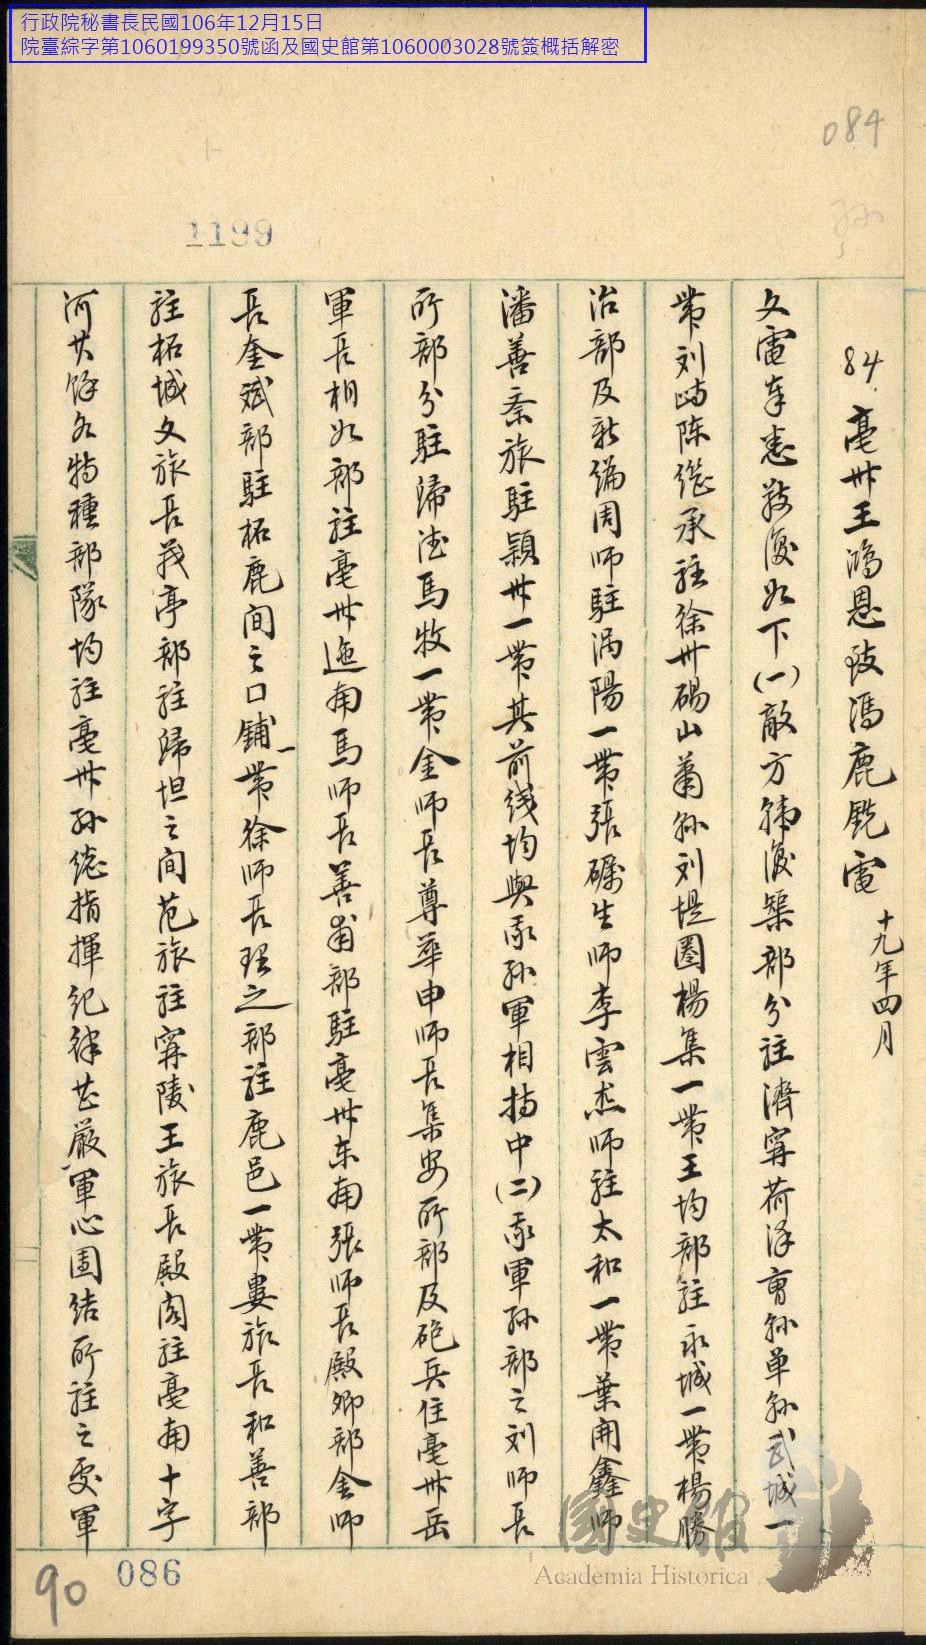 行政院秘書長民國106年12月15日
院臺綜字第1060199350號函及國史館第1060003028號簽概括解密
084
1199
84. 亳州王鴻恩致馮鹿銑電 十九年四月
文電奉悉茲復如下(一)敵方韓復榘部分註濟寧荷澤曹縣單縣武城一
帶刘峙陈继承註徐州碭山蕭縣刘堤圈楊集一帶王均部註永城一帶楊勝
治部及新編周師駐渦陽一帶張礪生師李雲杰師註太和一帶葉開鑫師
潘善斋旅駐穎州一帶其前线均與我孙軍相持中(二)我軍孙部之刘師長
所部分駐歸德馬牧一帶金師長尊華申師長集安所部及砲兵住亳州岳
軍長相如部註亳州迤南馬師長善甫部駐亳州东南張師長殿卿部金師
長奎斌部駐柘鹿间之口鋪一帶徐師長理之部註鹿邑一帶婁旅長和善部
註柘城文旅長莪亭部註歸坦之间范旅註寧陵王旅長殿阁註亳南十字
河其餘各特種部隊均註亳州孙總指揮纪律甚嚴軍心固结所註之處軍
國史館
Academia Historica
086
90